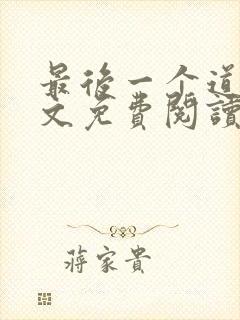 最後一个道
文免費閱讀
蔣家貴